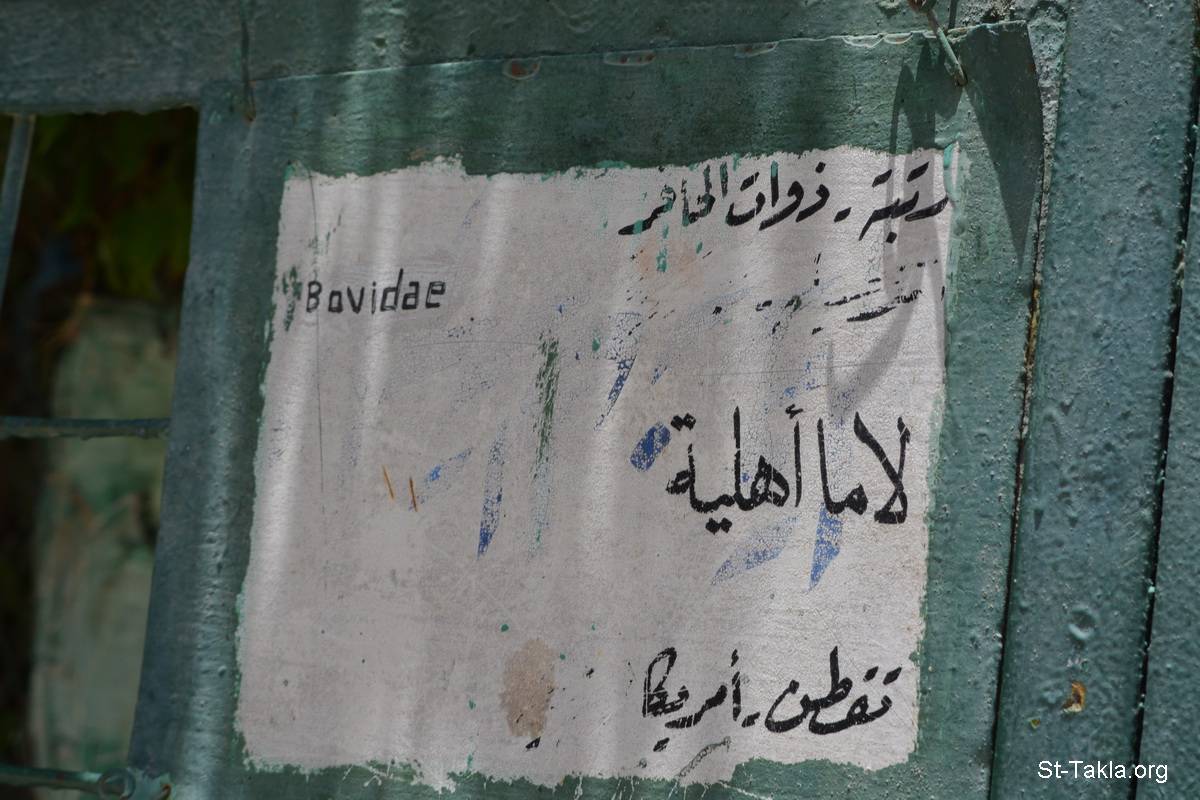 رتبة - ذوات الحافر
Bovidae
لاما أهلية
تقطن - أمريكا
St-Takla.org